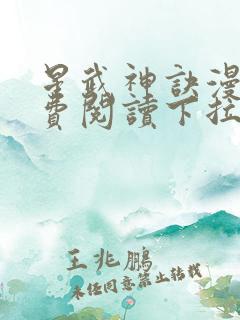 星武神訣漫
費閱讀下拉
王兆鵬
未经同意禁止转载